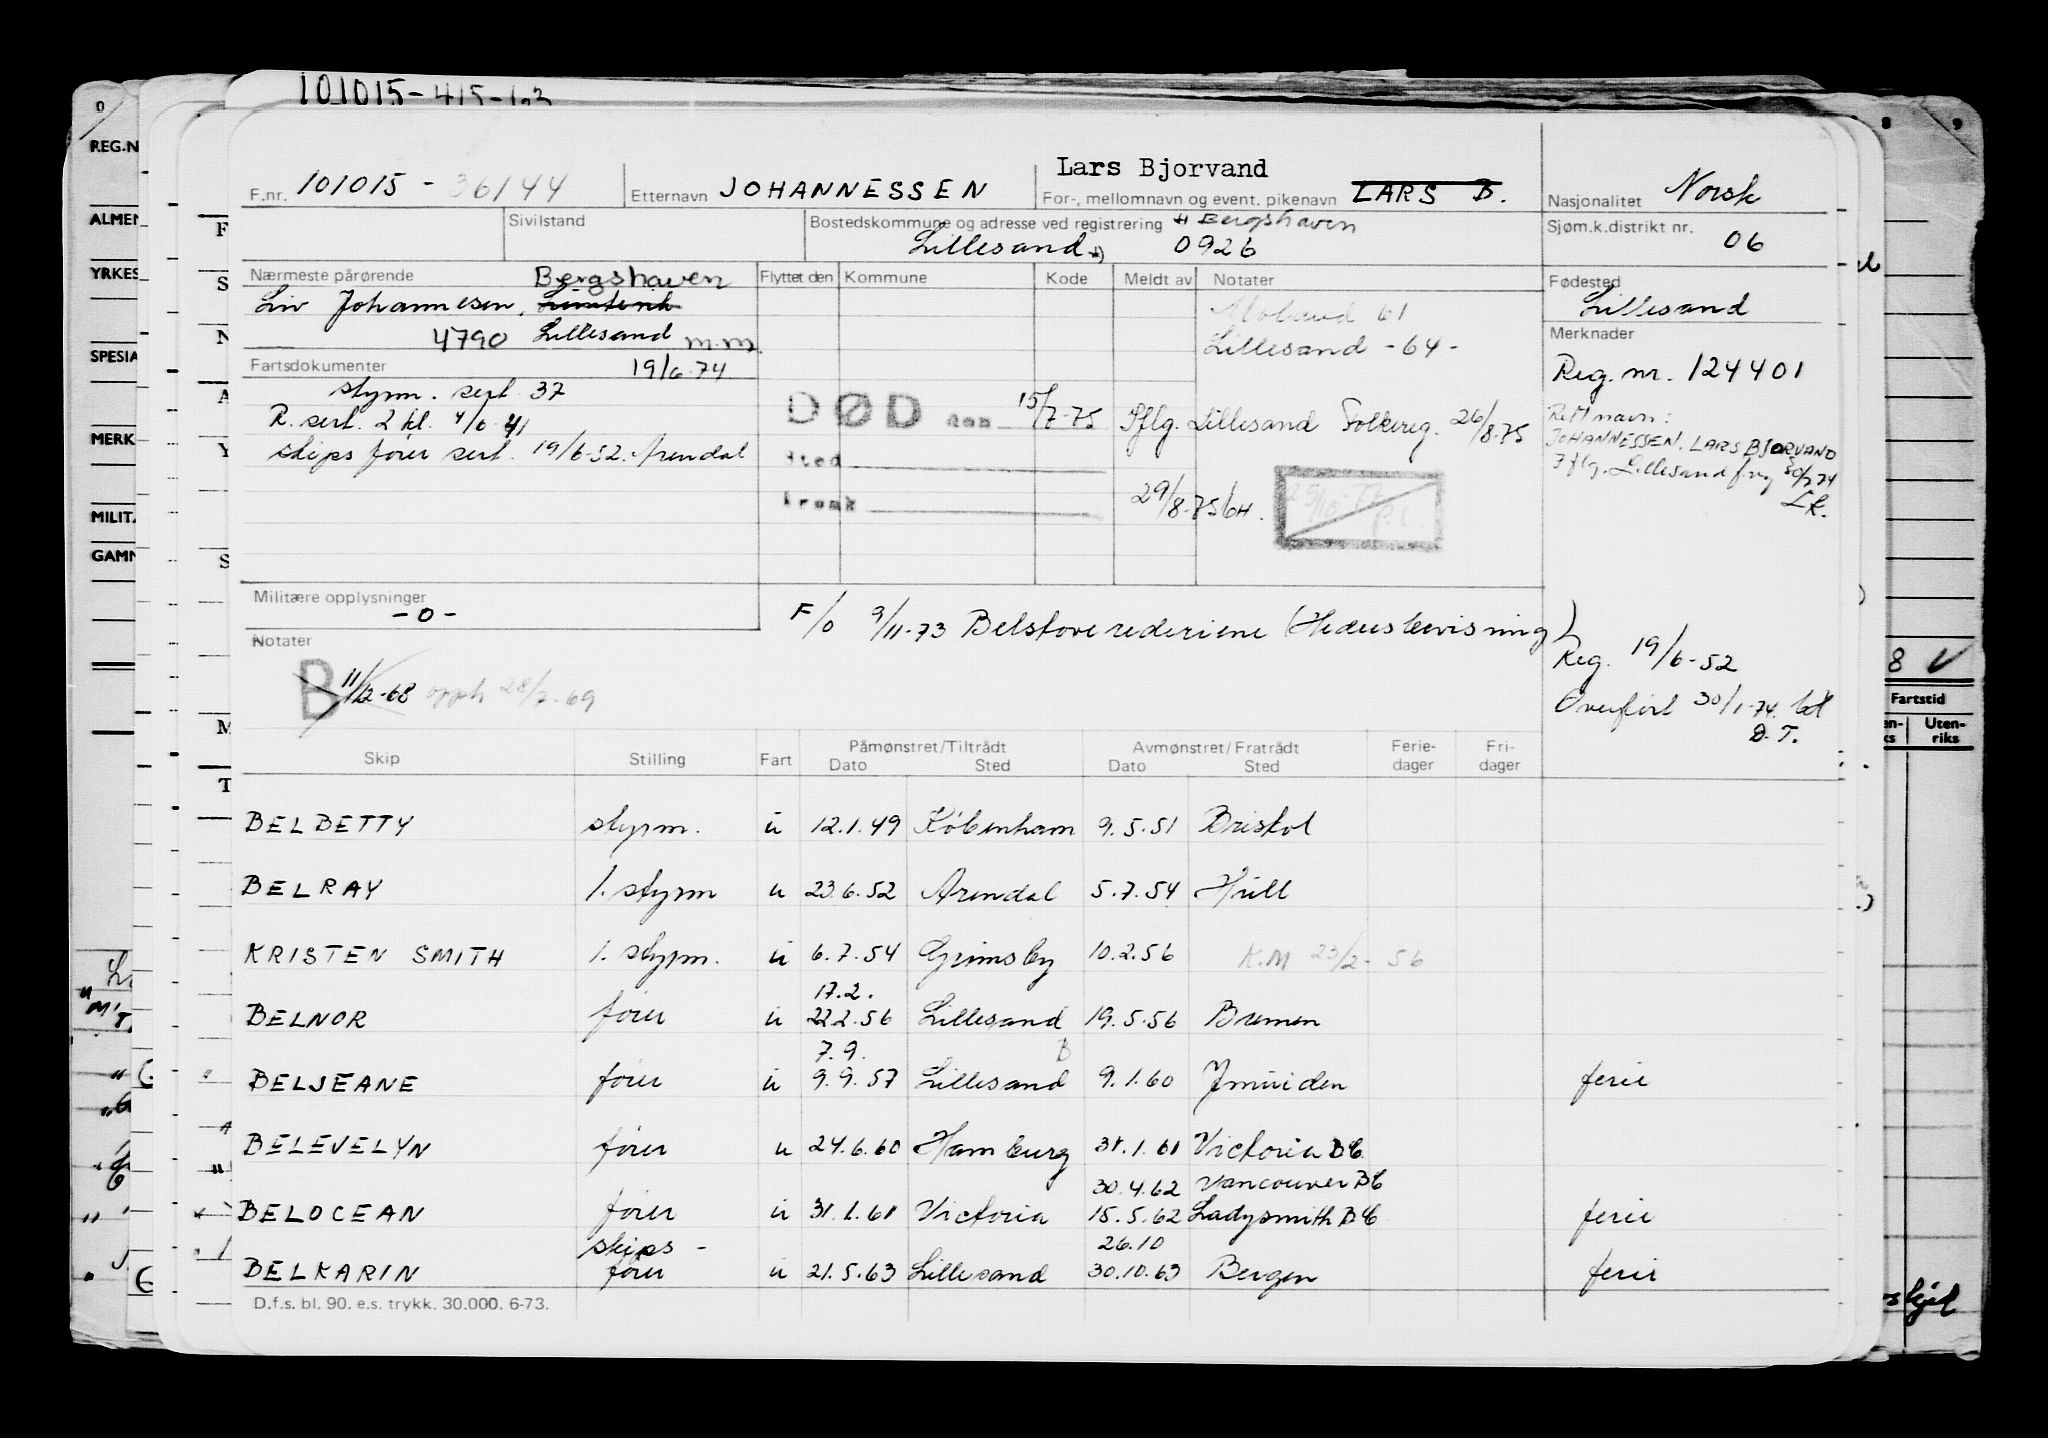 101015-415-1 2
Lars Bjorvand
F.nr. 101015 - 36144 Etternavn JOHANNESSEN For-, mellomnavn og event. pikenavn LARS B. Nasjonalitet Norsk
Sivilstand Bostedskommune og adresse ved registrering *) Bergshaven Sjøm.k.distrikt nr. 06
Lillesand *) 0926
Nærmeste pårørende Bergshaven Flyttet den Kommune Kode Meldt av Notater Fødested
Liv Johannesen, Lillesand
Moland 61
4790 Lillesand m.m. Lillesand -64- Merknader
Fartsdokumenter 19/6-74 Reg. nr. 124401
styrm. sert. 37
R. sert. 2 kl. 4/6-41 DØD den 15/7-75 Iflg. Lillesand Folkereg. 26/8-75 Rett navn:
skips fører sert. 19/6-52. Arendal JOHANNESSEN. LARS BJORVAND
Sted Iflg. Lillesand f.reg 30/7 74
Årsak 29/8-75 bH. LK.
Militære opplysninger
-0-
F/O 9/11-73 Belskove rederiene (Hedersbevisning)
Notater
Reg. 19/6-52
B 11/12-68 opph 28/7-69
Overført 30/1-74. bt
D.T.
Skip Stilling Fart Påmønstret/Tiltrådt Avmønstret/Fratrådt Ferie- Fri-
Dato Sted Dato Sted dager dager
BELBETTY styrm. u 12.1.49 København 9.5.51 Bristol
BELRAY 1. styrm u 23.6.52 Arendal 5.7.54 Hull
KRISTEN SMITH 1. styrm. u 6.7.54 Grimsby 10.2.56 K.M 23/2-56
17.2.
BELNOR fører u 22.2.56 Lillesand 19.5.56 Bremen
7.9. B
BELJEANE fører u 9.9.57 Lillesand 9.1.60 Jmuiden ferie
BELEVELYN fører u 24.6.60 Hamburg 31.1.61 Victoria BC
30.4.62 Vancouver BC
BELOCEAN fører u 31.1.61 Victoria 15.5.62 Ladysmith BC ferie
skips- 26.10
BELKARIN fører u 21.5.63 Lillesand 30.10.63 Bergen ferie
D.f.s. bl. 90. e.s. trykk. 30.000. 6-73.
REG.N
ALMEN
YRKES
SPESIA
MERK
MILITÆ
GAMM
F
S
N
A
Y
S
M
T
8 9
8 V
Fartstid
Uten-
riks